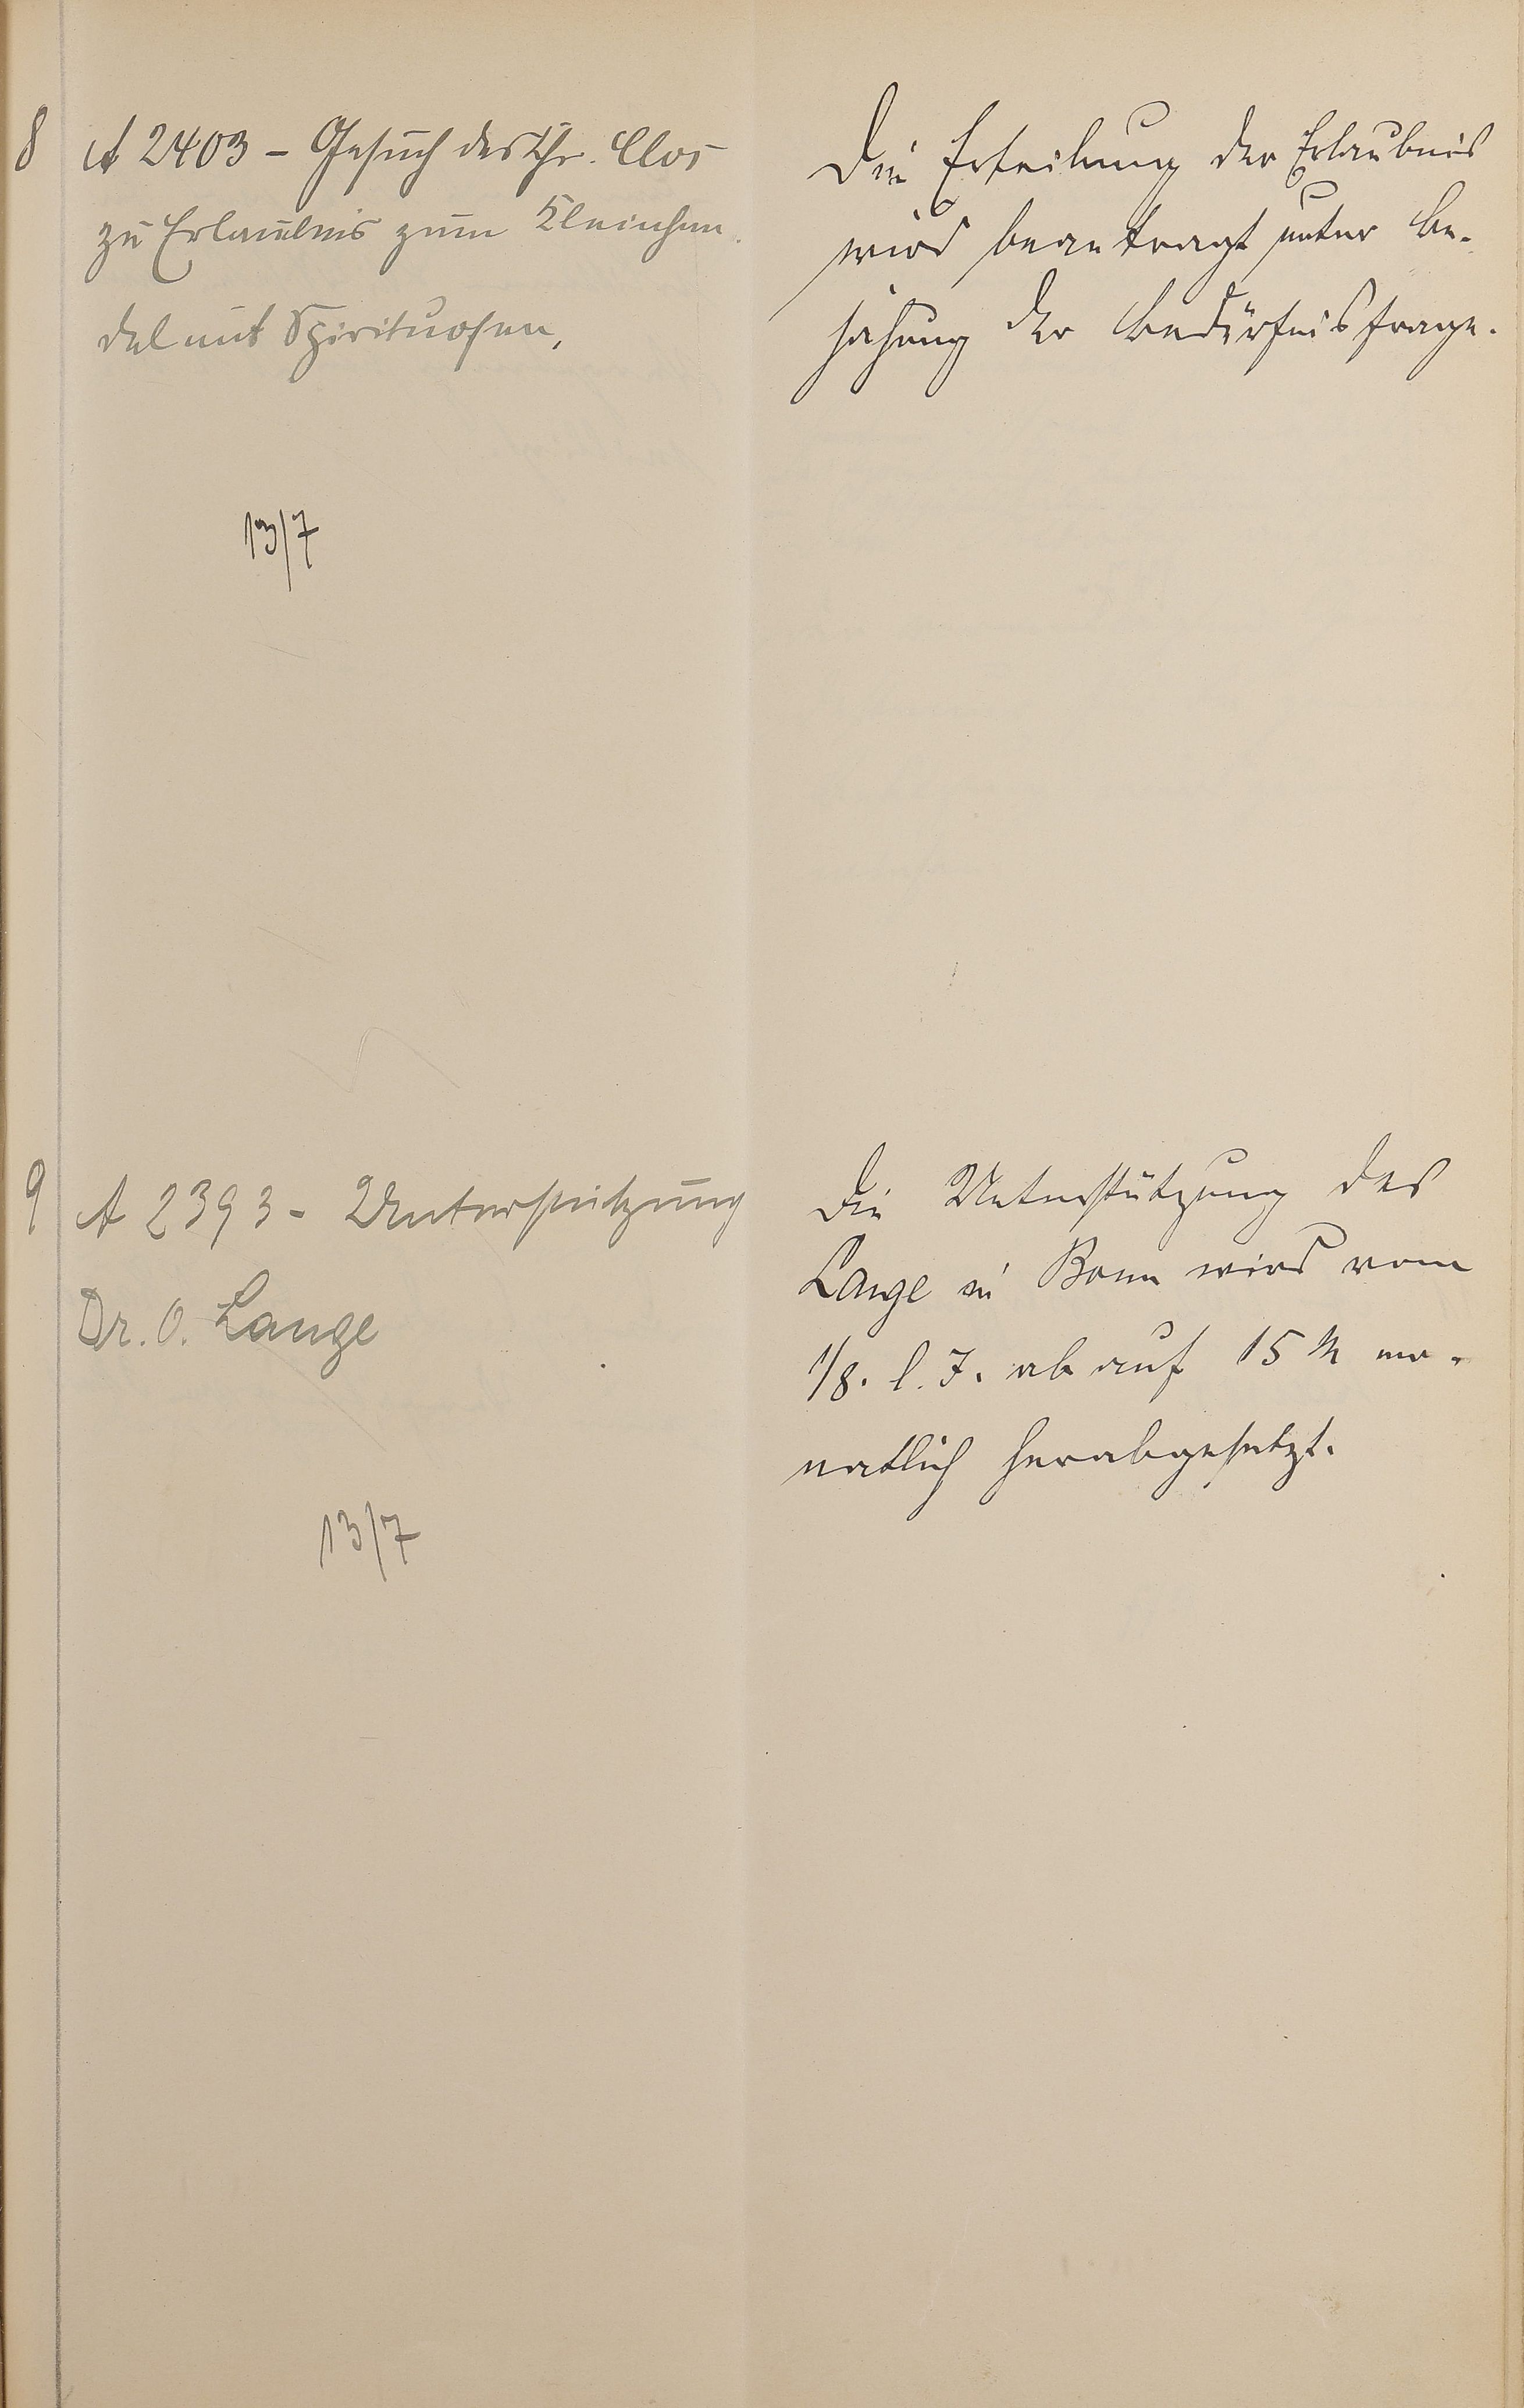 8 A 2403 - Gesuch des Chr. Clos
zu Erlaubnis zum Kleinhan-
del mit Spirituosen,
13/7
Die Erteilung der Erlaubnis
wird beantragt unter Be-
jahung der Bedürfnisfrage.
9 A 2393 - Unterstützung
Dr. O. Lange
13/7
Die Unterstützung des
Lange in Bonn wird vom
1/8. l. J. ab auf 15 M mo-
natlich herabgesetzt.